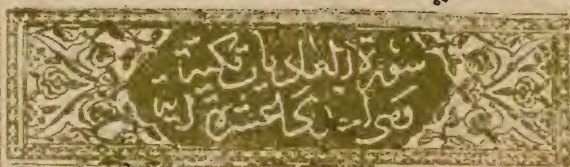 سورة العاديات مكية
وهى احدى عشرة اية